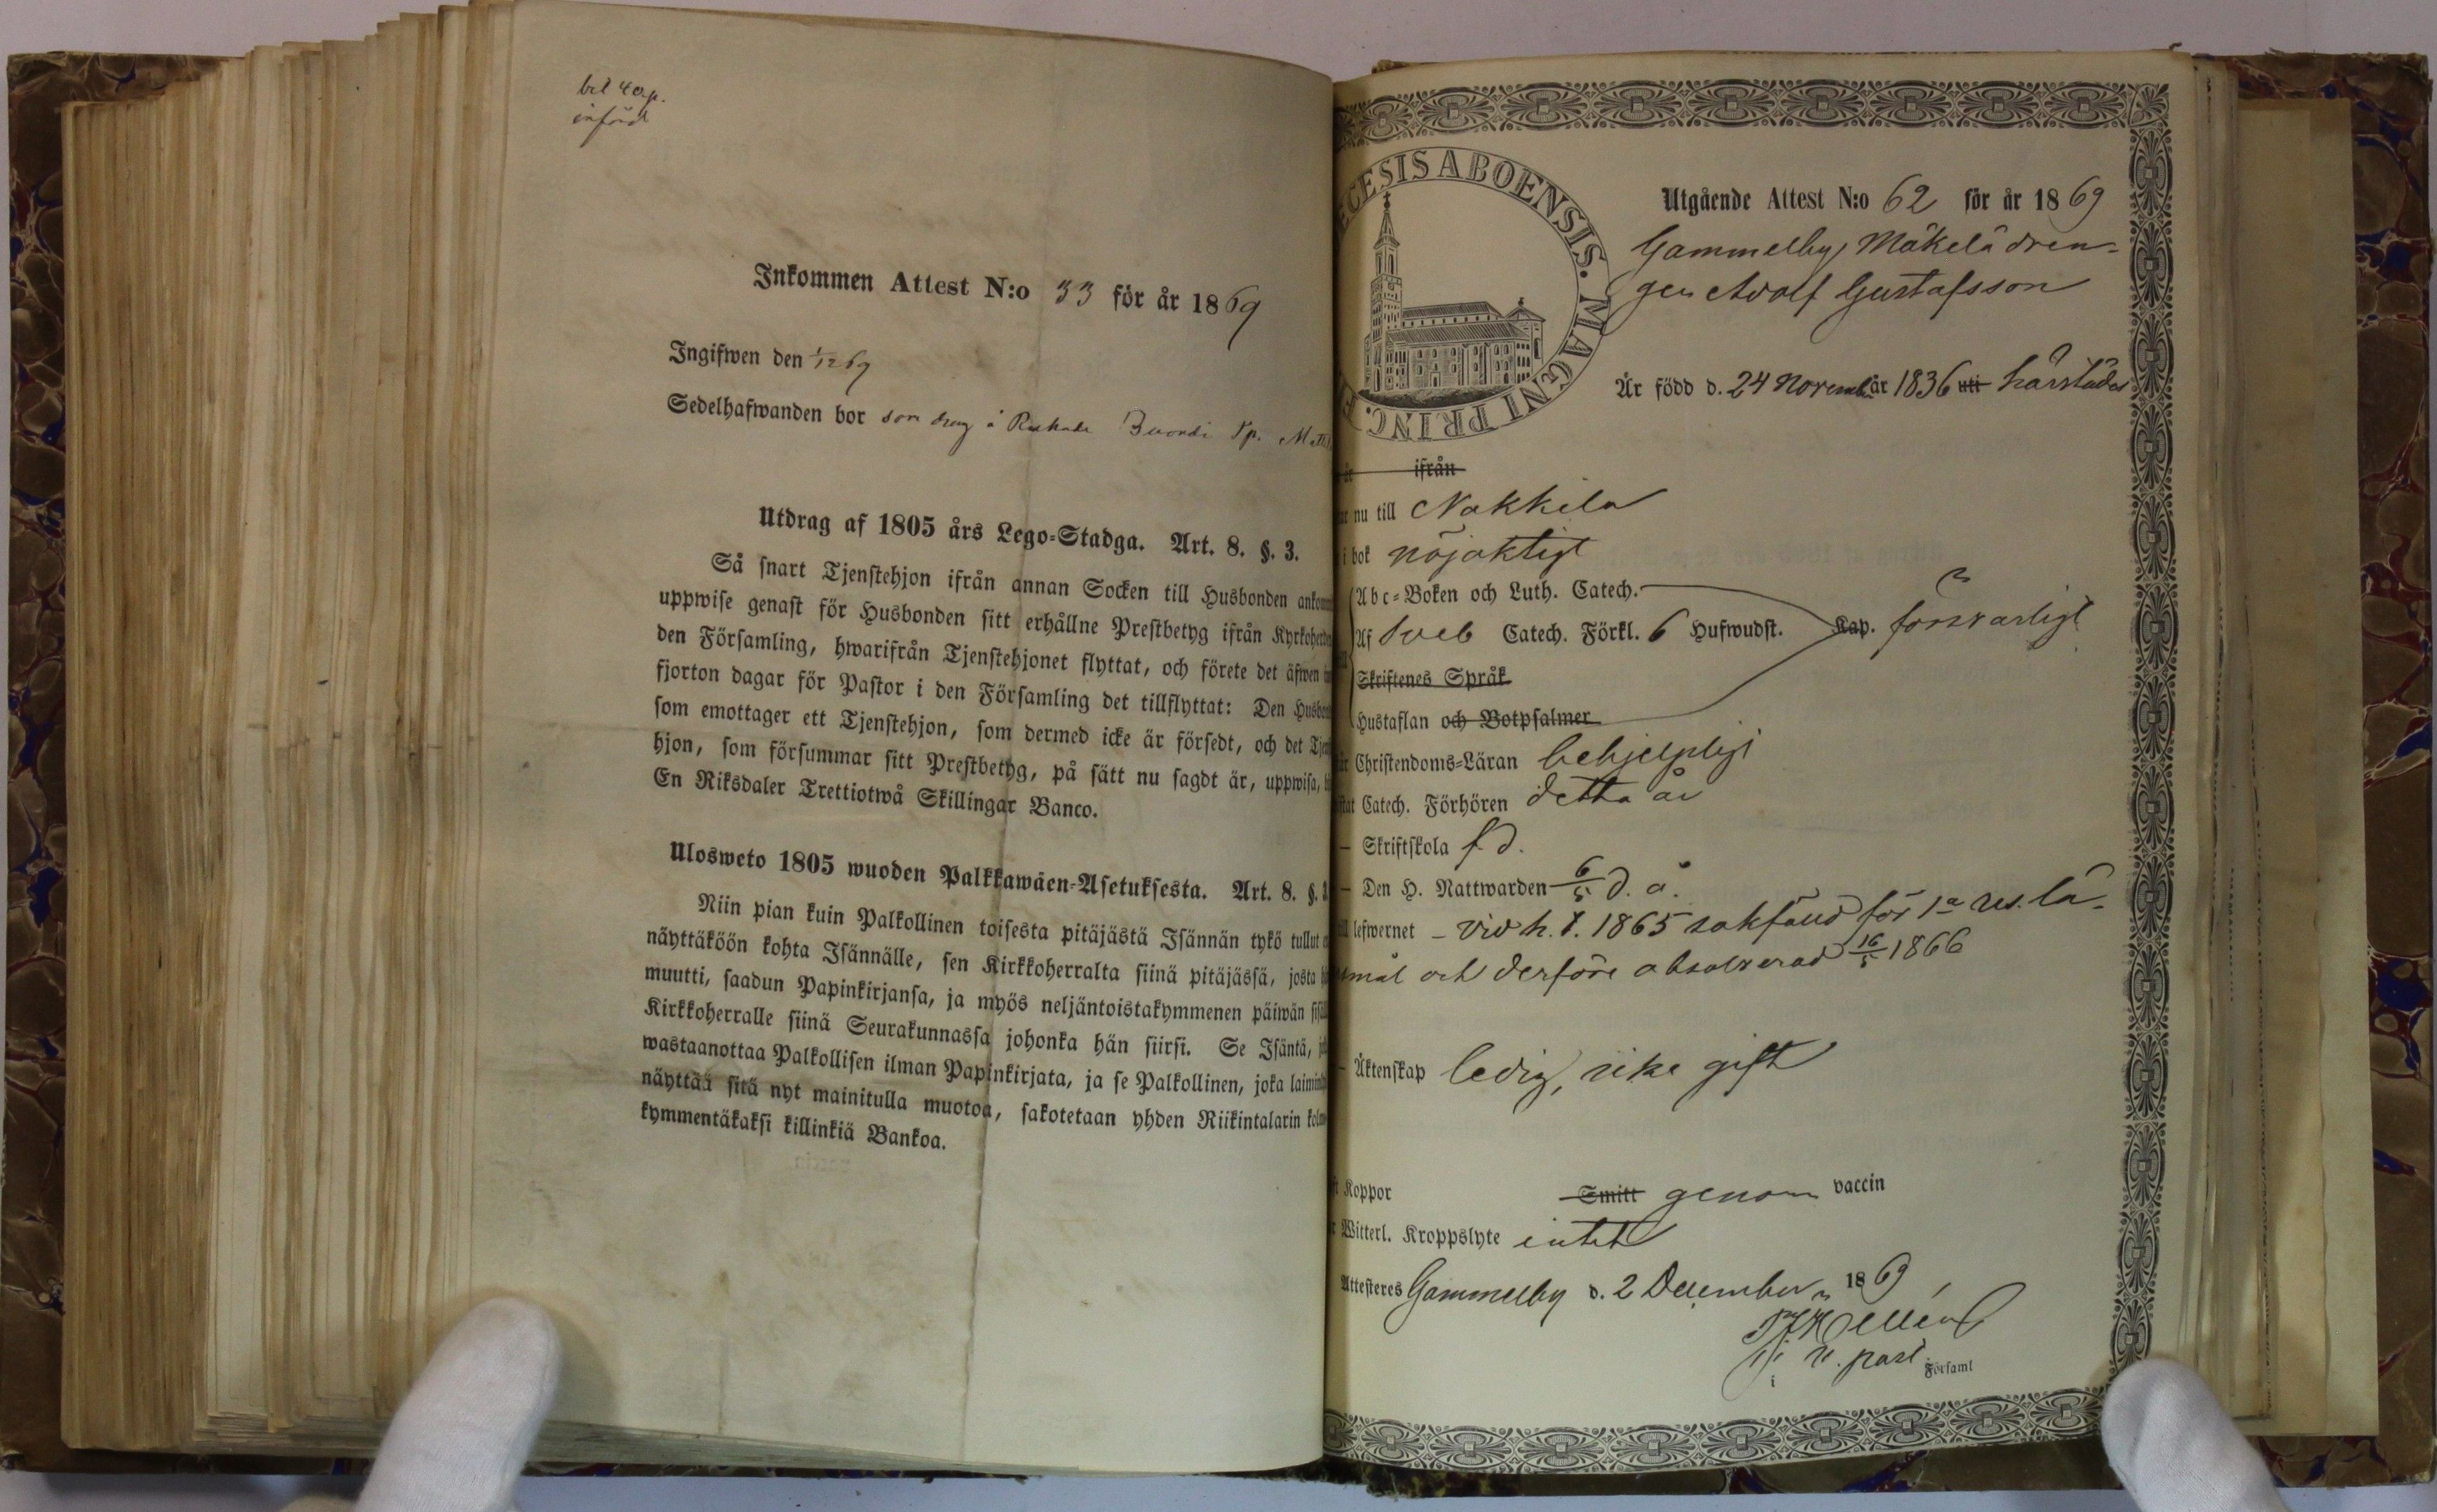 bet 40 p.
införd
Inkommen Attest N:o 33 för år 1869
Ingifwen den 1/12 69
Sedelhafwanden bor som dreng å
Utdrag af 1805 års Lego-Stadga. Art. 8. §. 3.
Så snart Tjenstehjon ifrån annan Socken till Husbonden ankom
uppwise genast för Husbonden sitt erhållne Prestbetyg ifrån Kyrkoherden
den Församling, hwarifrån Tjenstehjonet flyttat, och förete det äfwen
fjorton dagar för Pastor i den Församling det tillflyttat: Den Husbon
som emottager ett Tjenstehjon, som dermed icke är försedt, och det Tjen
hjon, som försummar sitt Prestbetyg, på sätt nu sagdt är, uppwisa,
En Riksdaler Trettiotwå Skillingar Banco.
Ulosweto 1805 wuoden Palkkawäen-Asetuksesta. Art. 8. §.
Niin pian kuin Palkollinen toisesta pitäjästä Isännän tykö tullut
näyttäköön kohta Isännälle, sen Kirkkoherralta siinä pitäjässä, josta
muutti, saadun Papinkirjansa, ja myös neljäntoistakymmenen päiwän sisäll
Kirkkoherralle siinä Seurakunnassa johonka hän siirsi. Se Isäntä,
wastaanottaa Palkollisen ilman Papinkirjata, ja se Palkollinen, joka laimin
näyttää sitä nyt mainitulla muotoa, sakotetaan yhden Riikintalarin kolme
kymmentäkaksi killinkiä Bankoa.
ECESIS ABOENSIS. MAGNI PRINC. F
Utgående Attest N:o 62 för år 1869
Gammelby, Mäkelä dren-
gen Adolf Gustafsson
Är född d. 24 Novemb år 1836 uti härstädes
ifrån
nu till Nakkila
i bok nöjaktigt
Abc-Boken och Luth. Catech.
Af Sveb Catech. Förkl. 6 Hufwudst. Kap. försvarligt
Skriftenes Språk
Hustaflan och Botpsalmer
Christendoms-Läran behjelpligt
Catech. Förhören detta år
– Skriftskola f. d.
– Den H. Nattwarden 6/5 d. å.
lefwernet – vid h. t. 1865 sakfälld för 1a res. lä-
mål och derföre absolverad 16/5 1866
– Äktenskap ledig, icke gift
Koppor Smitt genom vaccin
Witterl. Kroppslyte intet
Attesteres Gammelby d. 2 December 1869
v. past.
i Församl